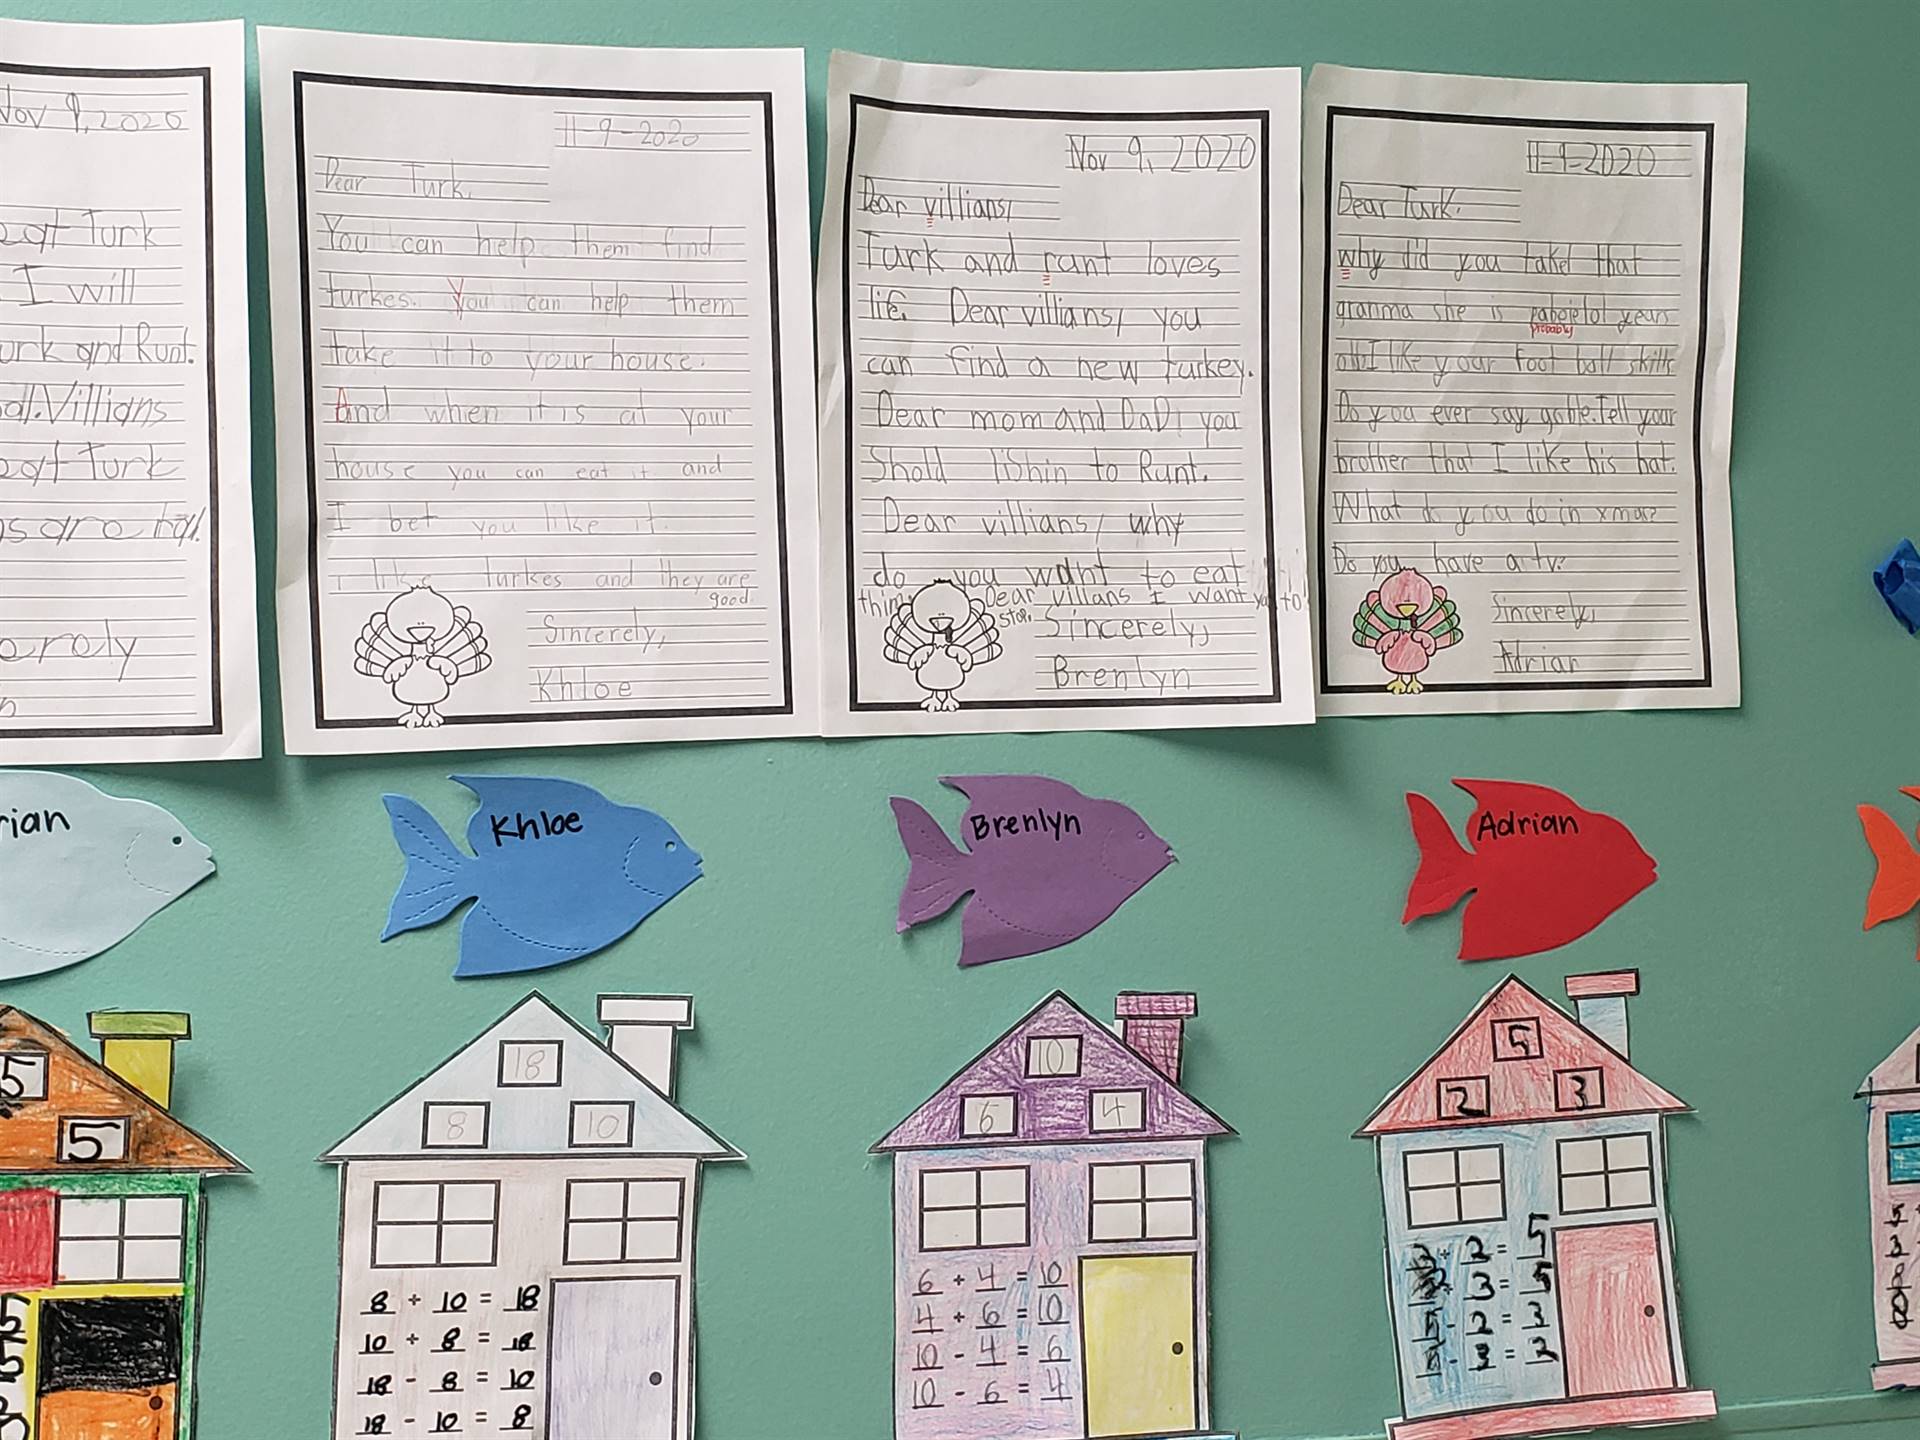 Nov 9, 2020
eat Turk
I will
urk and Runt.
al. Villians
eat Turk
s are
11-9-2020
Dear Turk.
You can help them find
turkes. You can help them
take it to your house.
And when it is at your
house you can eat it and
I bet you like it.
i like turkes and they are
good.
Sincerely,
Khloe
Nov 9, 2020
Dear villians,
Turk and runt loves
life. Dear villians, you
can find a new turkey.
Dear mom and DaD, you
Shold lishin to Runt.
Dear villians, why
do you want to eat
thim Dear villans I want you to
stop.
Sincerely,
Brenlyn
11-9-2020
Dear Turk.
why did you takel that
granma she is
probably
years
old. I like your foot ball skills
Do you ever say goble. Tell your
brother that I like his hat.
What do you do in xmas?
Do you have a tv?
Sincerely,
Adrian
rian
Khloe
Brenlyn
Adrian
5
5
18
8 10
8 + 10 = 18
10 + 8 = 18
18 - 8 = 10
18 - 10 = 8
10
6 4
6 + 4 = 10
4 + 6 = 10
10 - 4 = 6
10 - 6 = 4
5
2 3
+ 2 = 5
+ 3 = 5
- 2 = 3
- 3 = 2